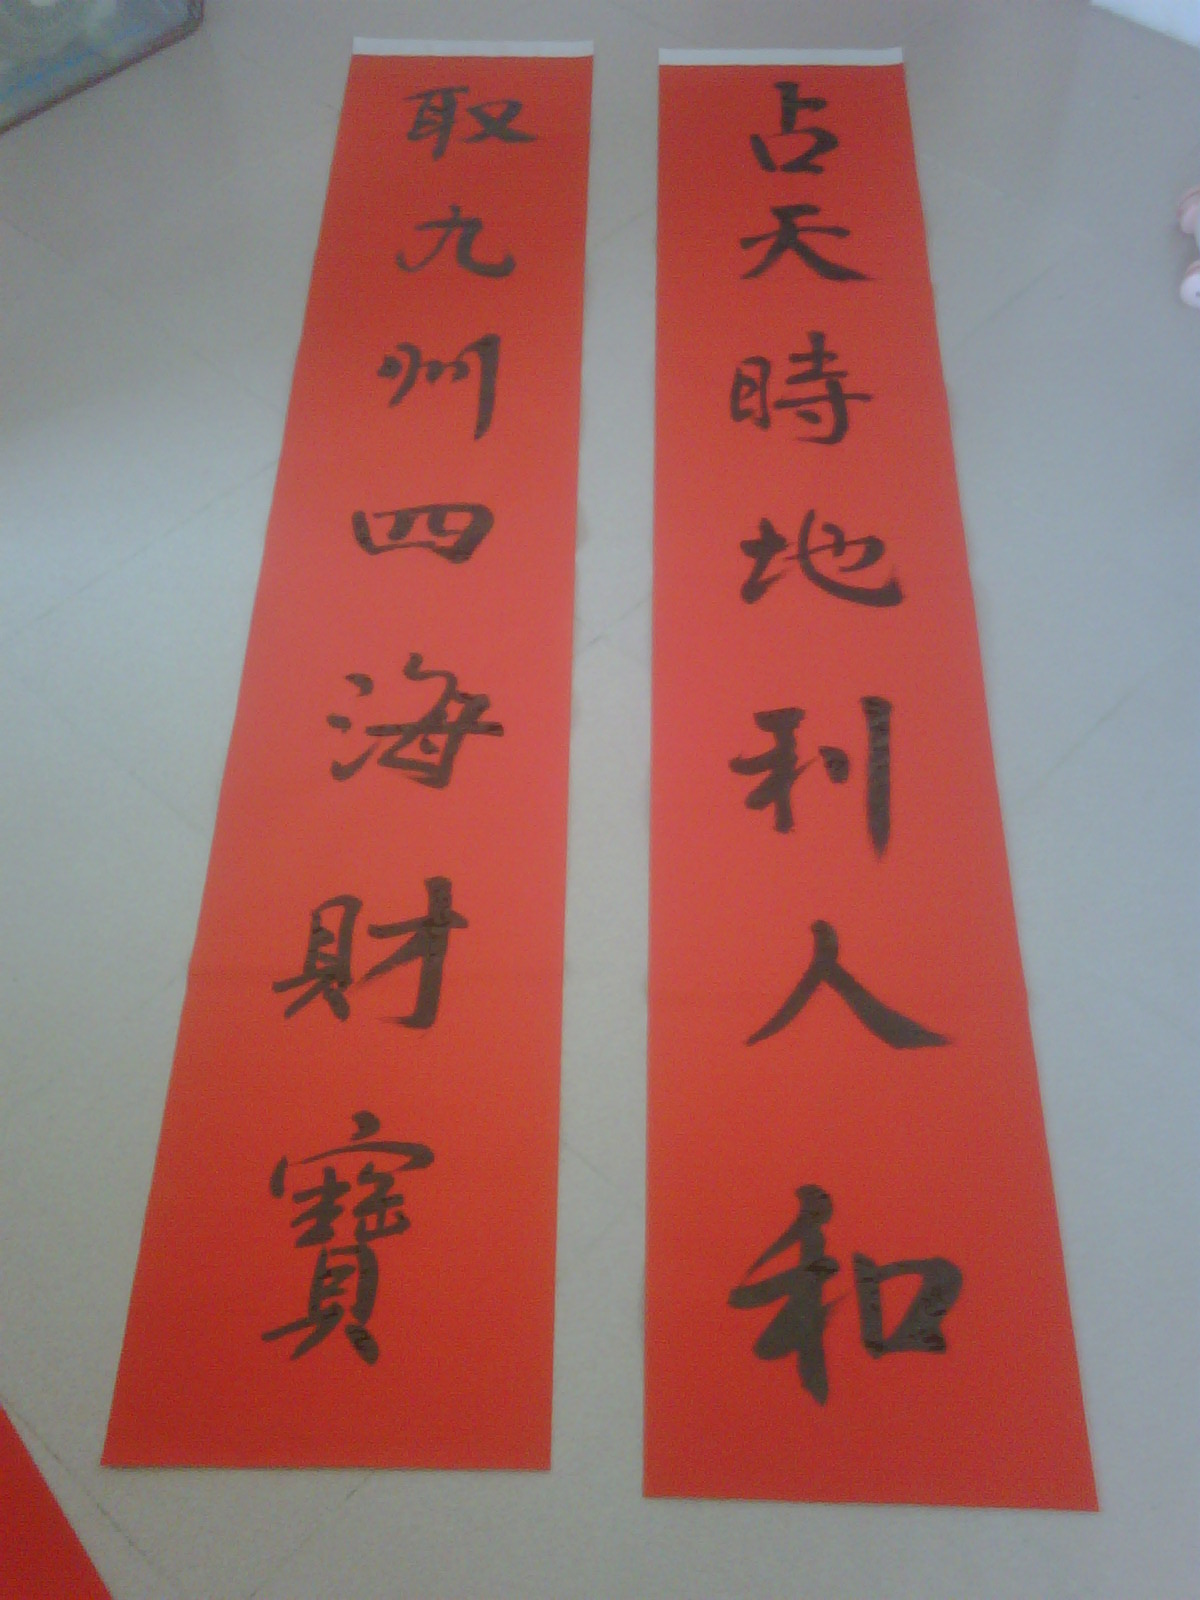 占天時地利人和
取九州四海財寶